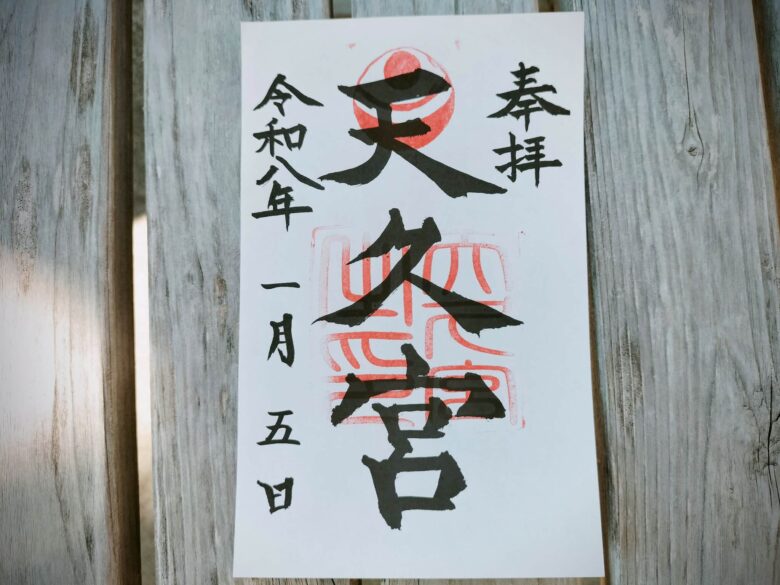 奉拝
天久宮
令和八年 一月 五日